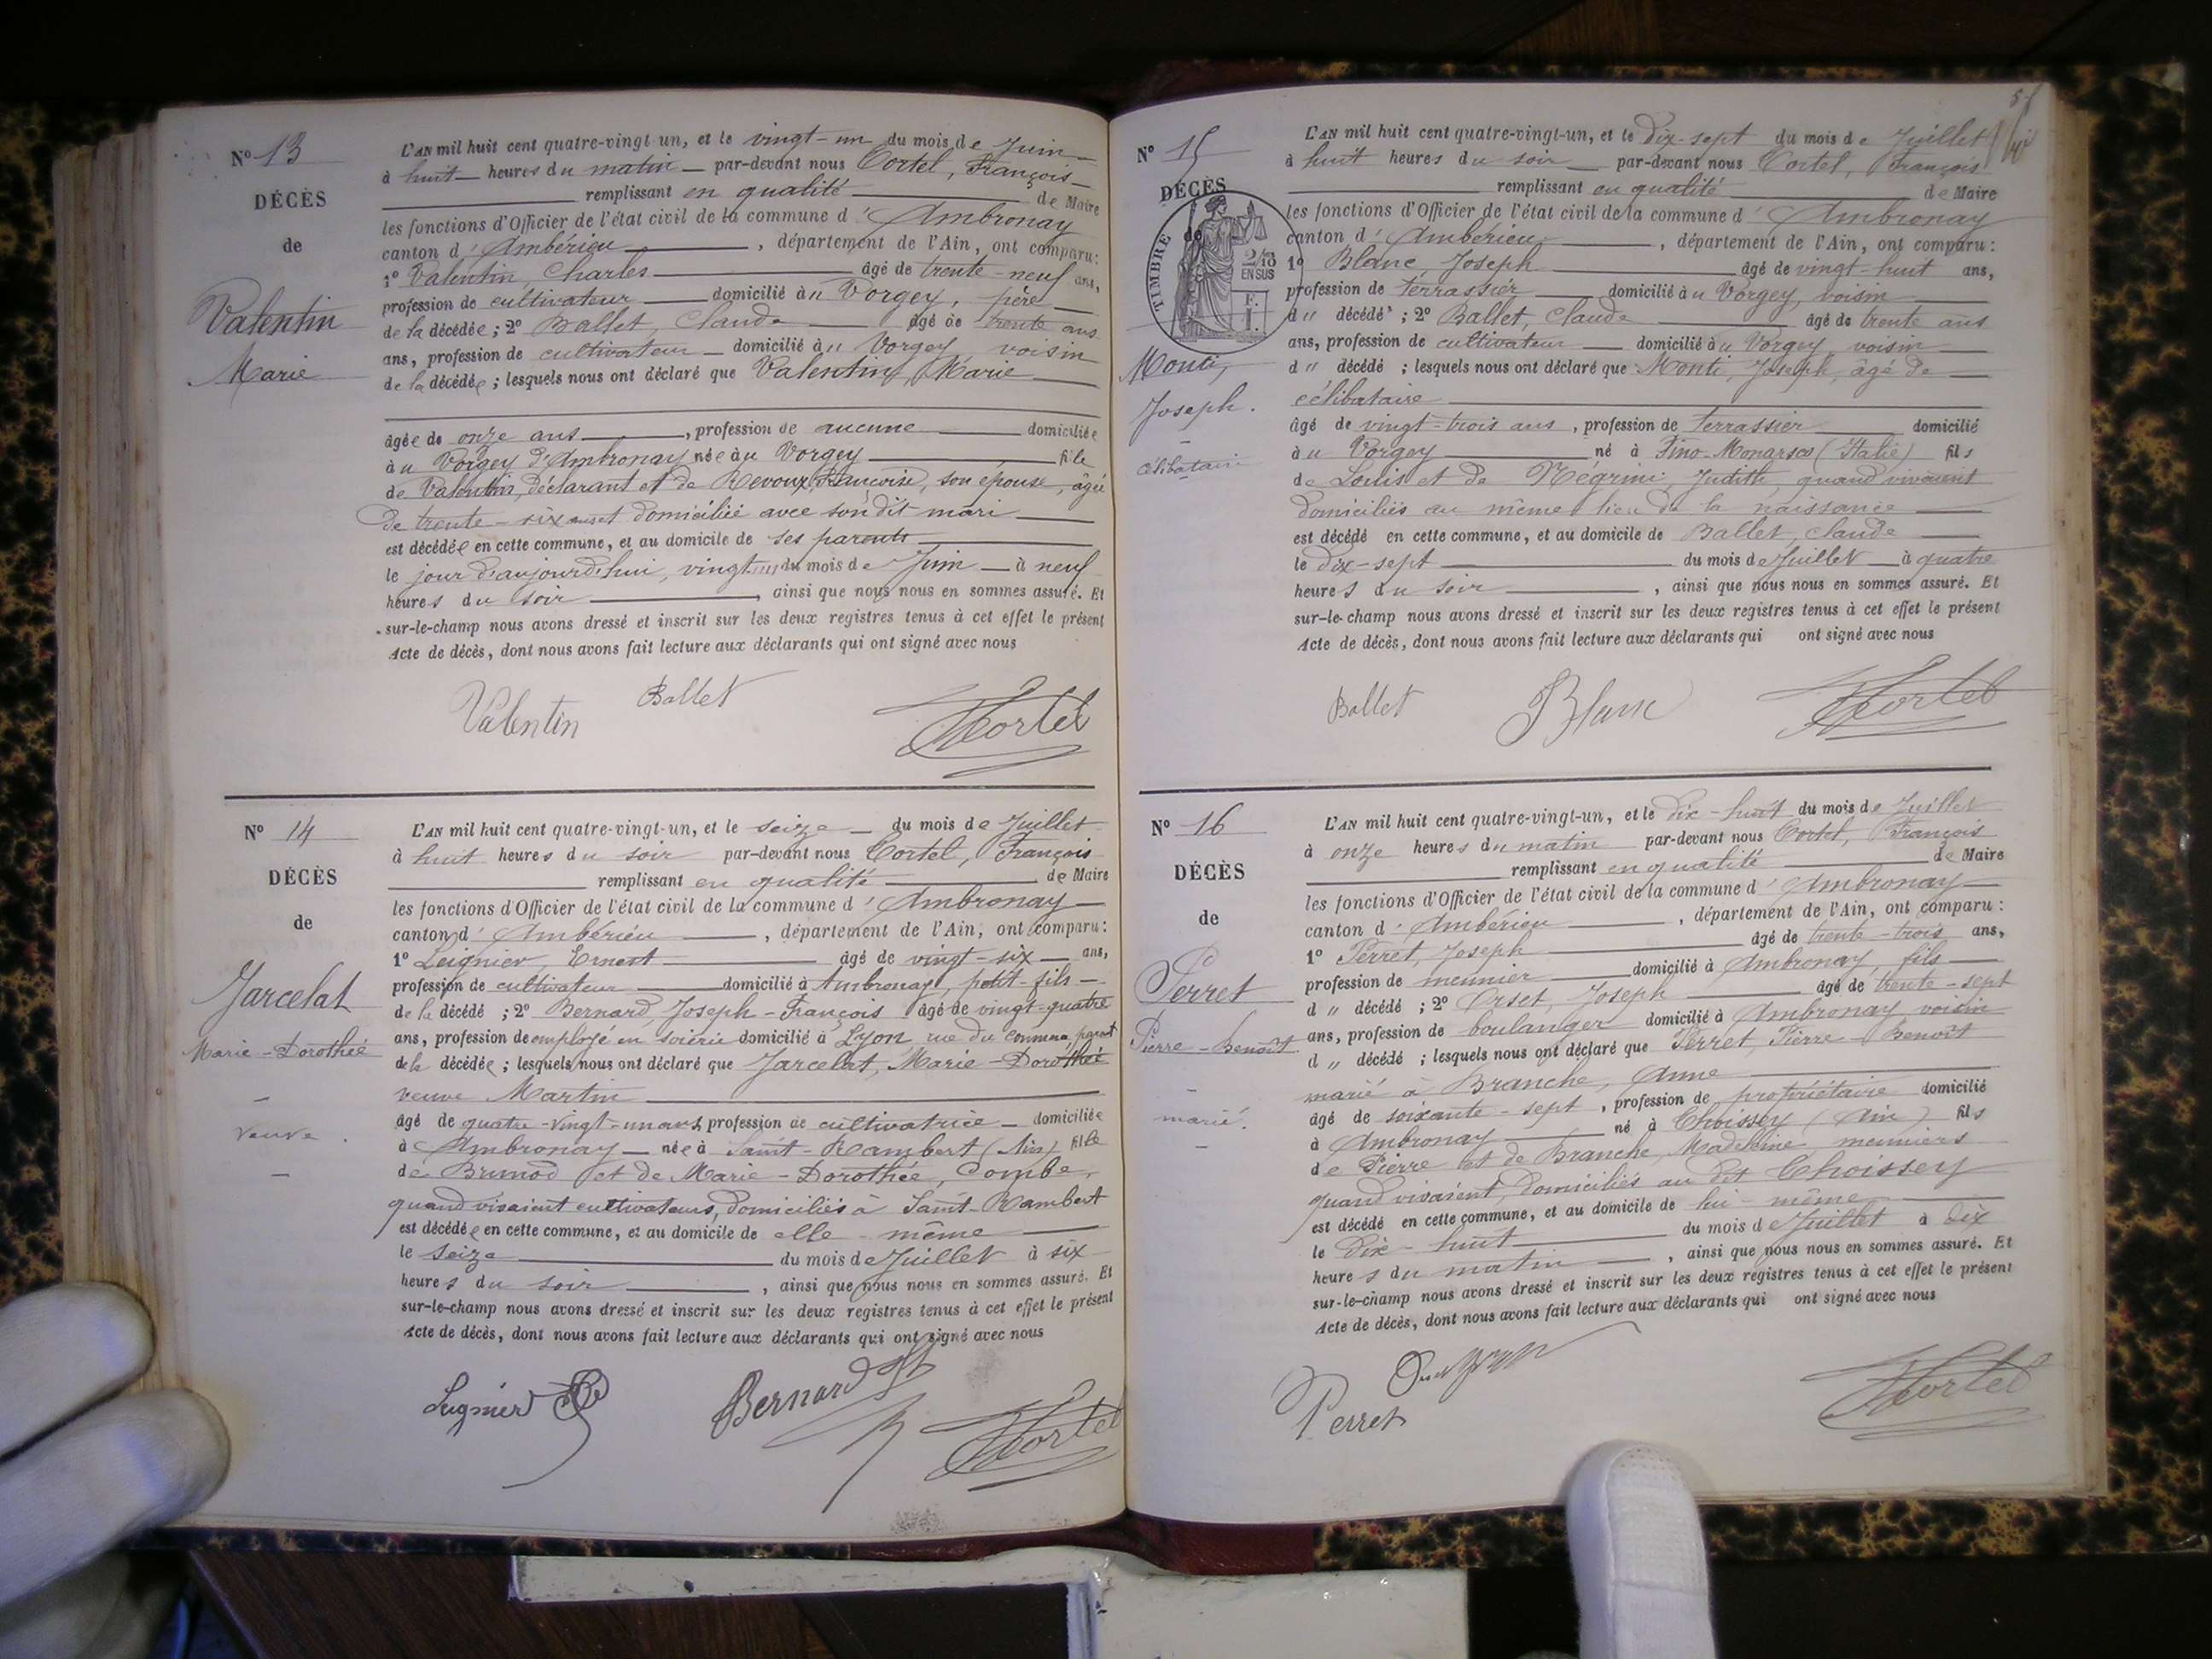 N° 13
DÉCÈS
de
Valentin
Marie
L'AN mil huit cent quatre-vingt un, et le vingt-un du mois de Juin
à huit heures du matin par-devant nous Cortel, François
remplissant en qualité de Maire
les fonctions d'Officier de l'état civil de la commune d'Ambronay
canton d'Ambérieu, département de l'Ain, ont comparu:
1° Valentin, Charles âgé de trente-neuf ans,
profession de cultivateur domicilié à u Vorgey, père
de la décédée; 2° Ballet, Claude âgé de trente ans
ans, profession de cultivateur domicilié à u Vorgey voisin
de la décédée; lesquels nous ont déclaré que Valentin, Marie
âgée de onze ans, profession de aucune domiciliée
à u Vorgey d'Ambronay née à u Vorgey fille
de Valentin, déclarant et de Revoux, Françoise, son épouse, âgée
de trente-six ans et domiciliée avec son dit mari
est décédée en cette commune, et au domicile de ses parents
le jour d'aujourd'hui, vingt du mois de Juin à neuf
heures du soir, ainsi que nous nous en sommes assuré. Et
sur-le-champ nous avons dressé et inscrit sur les deux registres tenus à cet effet le présent
Acte de décès, dont nous avons fait lecture aux déclarants qui ont signé avec nous
Valentin Ballet Cortel
N° 14
DÉCÈS
de
Jarcelat
Marie-Dorothée
veuve.
L'AN mil huit cent quatre-vingt-un, et le seize du mois de Juillet
à huit heures du soir par-devant nous Cortel, François
remplissant en qualité de Maire
les fonctions d'Officier de l'état civil de la commune d'Ambronay
canton d'Ambérieu, département de l'Ain, ont comparu:
1° Leignier, Ernest âgé de vingt-six ans,
profession de cultivateur domicilié à Ambronay, petit-fils
de la décédé; 2° Bernard, Joseph-François âgé de vingt-quatre
ans, profession de employé en soierie domicilié à Lyon, rue du
de la décédée; lesquels nous ont déclaré que Jarcelat, Marie-Dorothée
veuve Martin
âgé de quatre-vingt-un ans, profession de cultivatrice domiciliée
à Ambronay née à Saint-Rambert (Ain) fille
de Brunod et de Marie-Dorothée, Combe,
quand vivaient cultivateurs, domiciliés à Saint-Rambert
est décédée en cette commune, et au domicile de elle-même
le seize du mois de Juillet à six
heures du soir, ainsi que nous nous en sommes assuré. Et
sur-le-champ nous avons dressé et inscrit sur les deux registres tenus à cet effet le présent
Acte de décès, dont nous avons fait lecture aux déclarants qui ont signé avec nous
Leignier Bernard Cortel
N° 15
DÉCÈS
de
TIMBRE
2/10
EN SUS
Monti,
Joseph.
célibataire
L'AN mil huit cent quatre-vingt-un, et le dix-sept du mois de Juillet
à huit heures du soir par-devant nous Cortel, François
remplissant en qualité de Maire
les fonctions d'Officier de l'état civil de la commune d'Ambronay
canton d'Ambérieu, département de l'Ain, ont comparu:
1° Blanc Joseph âgé de vingt-huit ans,
profession de terrassier domicilié à u Vorgey, voisin
d u décédé; 2° Ballet, Claude âgé de trente ans
ans, profession de cultivateur domicilié à u Vorgey voisin
d u décédé; lesquels nous ont déclaré que Monti, Joseph, âgé de
célibataire
âgé de vingt-trois ans, profession de terrassier domicilié
à u Vorgey né à Fino-Monarsco (Italie) fils
de Louis et de Négrini, Judith, quand vivaient
domiciliés au même lieu de la naissance
est décédé en cette commune, et au domicile de Ballet, Claude
le dix-sept du mois de Juillet à quatre
heures du soir, ainsi que nous nous en sommes assuré. Et
sur-le-champ nous avons dressé et inscrit sur les deux registres tenus à cet effet le présent
Acte de décès, dont nous avons fait lecture aux déclarants qui ont signé avec nous
Ballet Blanc Cortel
N° 16
DÉCÈS
de
Perret
Pierre-Benoît.
marié.
L'AN mil huit cent quatre-vingt-un, et le dix-huit du mois de Juillet
à onze heures du matin par-devant nous Cortel, François
remplissant en qualité de Maire
les fonctions d'Officier de l'état civil de la commune d'Ambronay
canton d'Ambérieu, département de l'Ain, ont comparu:
1° Perret, Joseph âgé de trente-trois ans,
profession de meunier domicilié à Ambronay, fils
d u décédé; 2° Orset, Joseph âgé de trente-sept
ans, profession de boulanger domicilié à Ambronay voisin
d u décédé; lesquels nous ont déclaré que Perret, Pierre-Benoît
marié à Branche, Anne
âgé de soixante-sept, profession de propriétaire domicilié
à Ambronay né à Choissey (Ain) fils
de Pierre et de Branche, Madeleine, meuniers
quand vivaient, domiciliés au dit Choissey
est décédé en cette commune, et au domicile de lui-même
le dix-huit du mois de Juillet à dix
heures du matin, ainsi que nous nous en sommes assuré. Et
sur-le-champ nous avons dressé et inscrit sur les deux registres tenus à cet effet le présent
Acte de décès, dont nous avons fait lecture aux déclarants qui ont signé avec nous
Perret Cortel